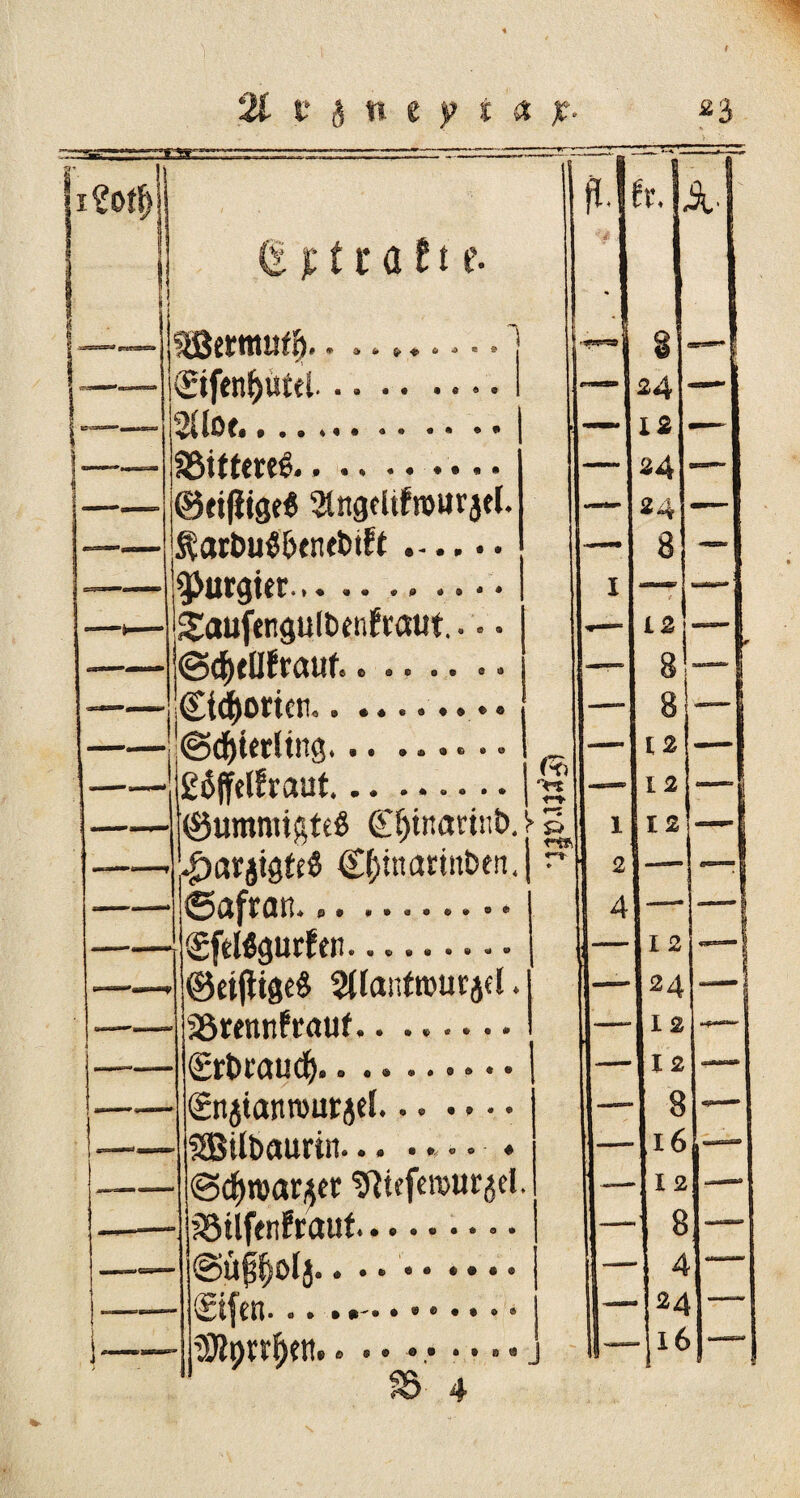 Arzneytax. 23
1 Loth
Extrakte.
fl. kr. ₰.
—— Wermuth......... — 8 —
—— Eisenhütel......... — 24 —
—— Aloe......... — 12 —
—— Bitteres......... — 24 —
—— Geistiges Angelikwurzel. — 24 —
—— Karbusbenedikt ...... — 8 —
—— Purgier......... 1 — —
—— Tausenguldenkraut.... — 12 —
—— Schellkraut........ — 8 —
—— Cichorien......... — 8 —
—— Schierling......... — 12 —
—— Löffelkraut......... — 12 —
—— Gummigtes Chinarind. 1 12 —
—— Harzigtes Chinarinden. 2 — —
—— Safran......... 4 — —
—— Eselsgurken......... — 12 —
—— Geistiges Alantwurzel. — 24 —
—— Brennkraut........ — 12 —
—— Erdrauch......... — 12 —
—— Enzianwurzel....... — 8 —
—— Wildaurin....... — 16 —
—— Schwarzer Niesewurzel. — 12 —
—— Bilsenkraut......... — 8 —
—— Süßholz......... — 4 —
—— Eisen......... — 24 —
—— Myrrhen......... — 16 —
B 4